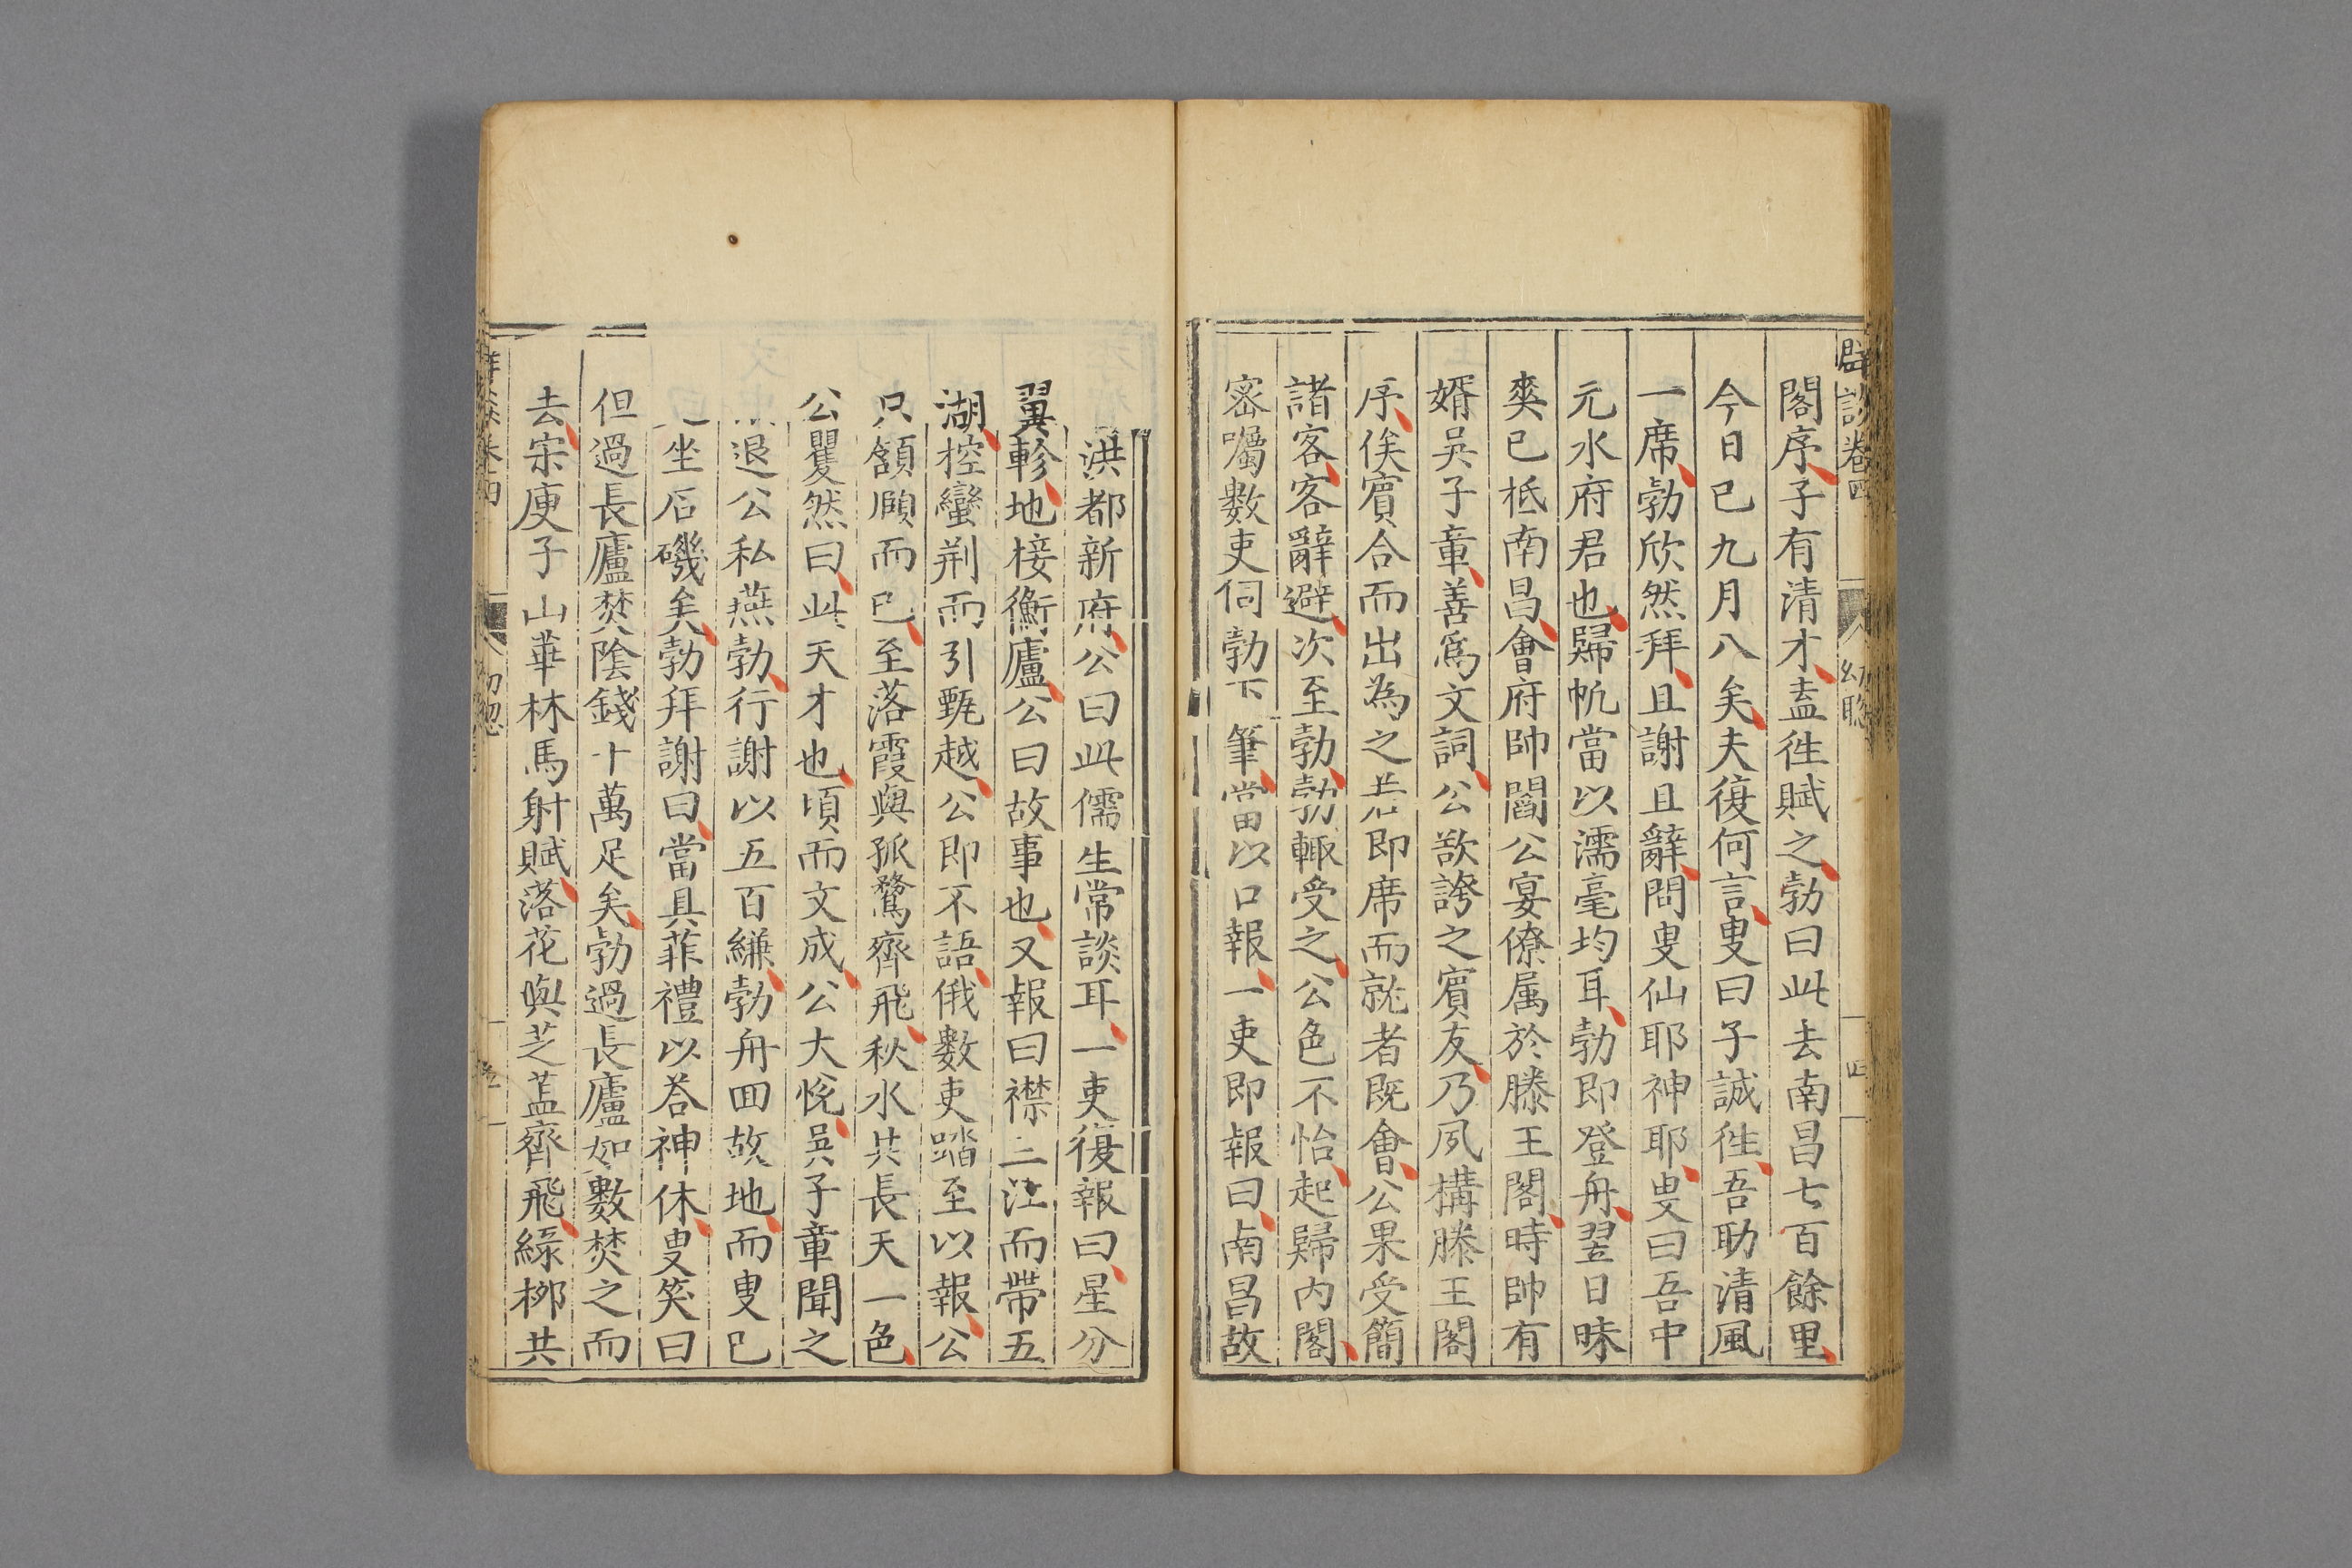 羣談卷四 幼聡 四
閣序子有清才盍徃賦之勃曰此去南昌七百餘里
今日已九月八矣夫復何言叟曰子誠徃吾助清風
一席勃欣然拜且謝且辭問叟仙耶神耶叟曰吾中
元水府君也歸帆當以濡毫均耳勃即登舟翌日昧
爽已柢南昌會府帥閻公宴僚属於滕王閣時帥有
婿吳子章善爲文詞公欲誇之賓友乃夙構滕王閣
序俟賓合而出為之若即席而就者既會公果受簡
諸客客辭避次至勃勃輙受之公色不怡起歸内閣
宻囑數吏伺勃下筆當以口報一吏即報曰南昌故
洪都新府公曰此儒生常談耳一吏復報曰星分
翼軫地接衡廬公曰故事也又報曰襟三江而帶五
湖控蠻荆而引甌越公即不語俄數吏踏至以報公
只頷頤而已至落霞與孤鶩齊飛秋水共長天一色
公矍然曰此天才也頃而文成公大恱吳子章聞之
退公私燕勃行謝以五百縑勃舟回故地而叟已
坐石磯矣勃拜謝曰當具菲禮以荅神休叟笑曰
但過長廬焚陰錢十萬足矣勃過長廬如數焚之而
去宋庾子山華林馬射賦落花與芝葢齊飛綠栁共